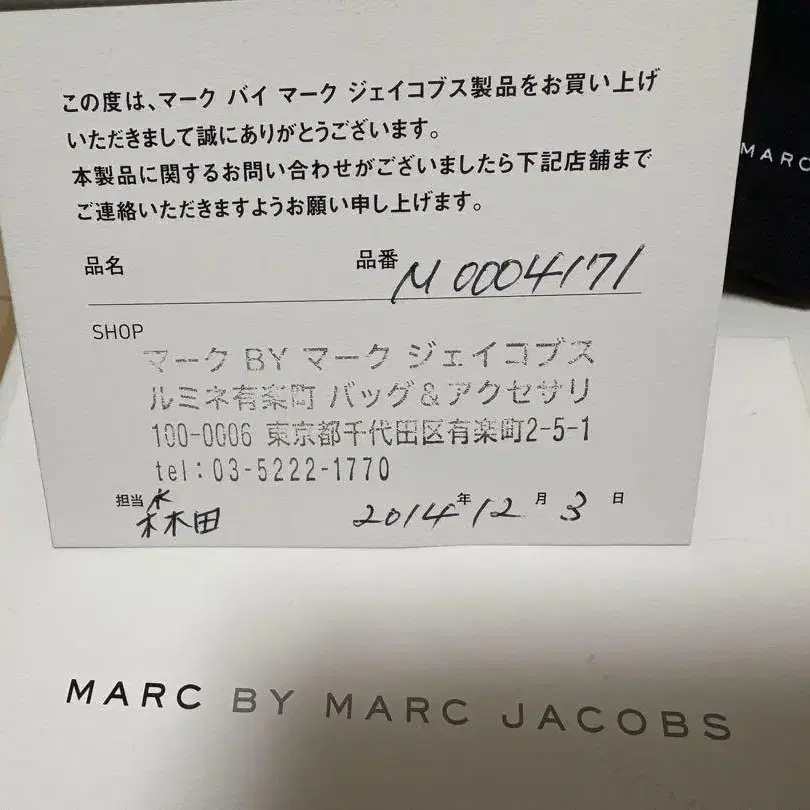 この度は、マーク バイ マーク ジェイコブス製品をお買い上げ
いただきまして誠にありがとうございます。
本製品に関するお問い合わせがございましたら下記店舗まで
ご連絡いただきますようお願い申し上げます。
品名 品番 M0004171
SHOP
マーク BY マーク ジェイコブス
ルミネ有楽町 バッグ&アクセサリ
100-0006 東京都千代田区有楽町2-5-1
tel:03-5222-1770
担当 森田 2014年12月3日
MARC BY MARC JACOBS
MARC